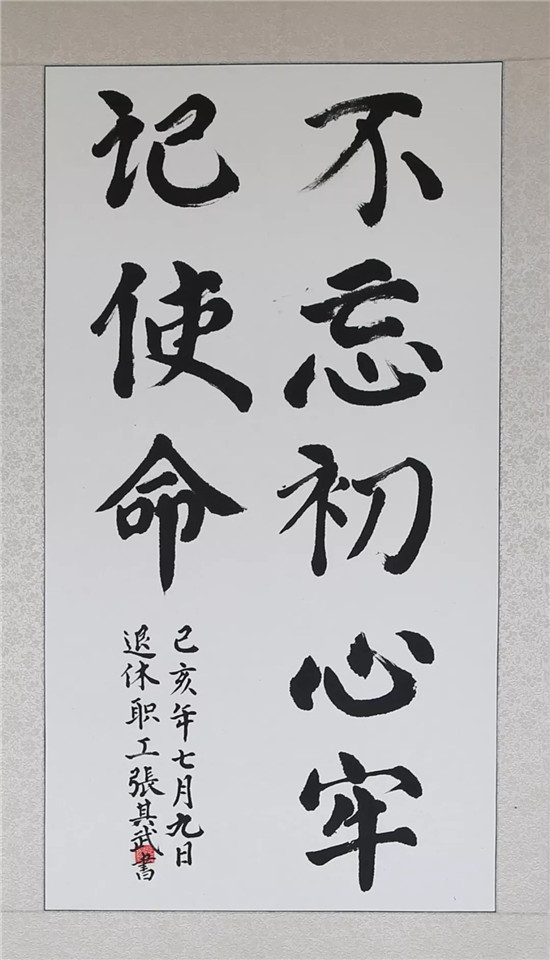 不忘初心牢
记使命
己亥年七月九日
退休职工張其武書